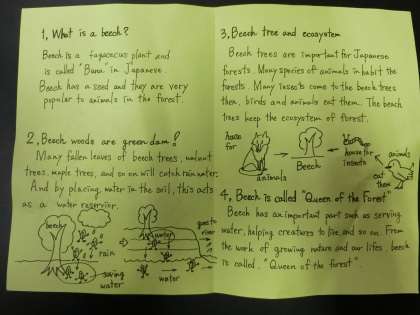 1, What is a beech?
Beech is a fagaceous plant and
is called "Buna" in Japanese.
Beech has a seed and they are very
popular to animals in the forest.
2, Beech woods are green dam?
Many fallen leaves of beech trees, walnut
trees, maple trees, and so on will catch rain water.
And by placing water in the soil, this acts
as a water reservior.
beech
rain
saving
water
water
water
goes to
river
3, Beech tree and ecosystem
Beech trees are important for Japanese
forests. Many species of animals inhabit the
forests. Many insects come to the beech trees
then, birds and animals eat them. The beach
trees keep the ecosystem of forest.
house
for
animals
Beech
house for
insects
animals
eat
them
4, Beech is called "Queen of the Forest"
Beech has an important part such as serving
water, helping creatures to live, and so on. From
the work of growing nature and our lifes, beech
is called, "Queen of the forest".